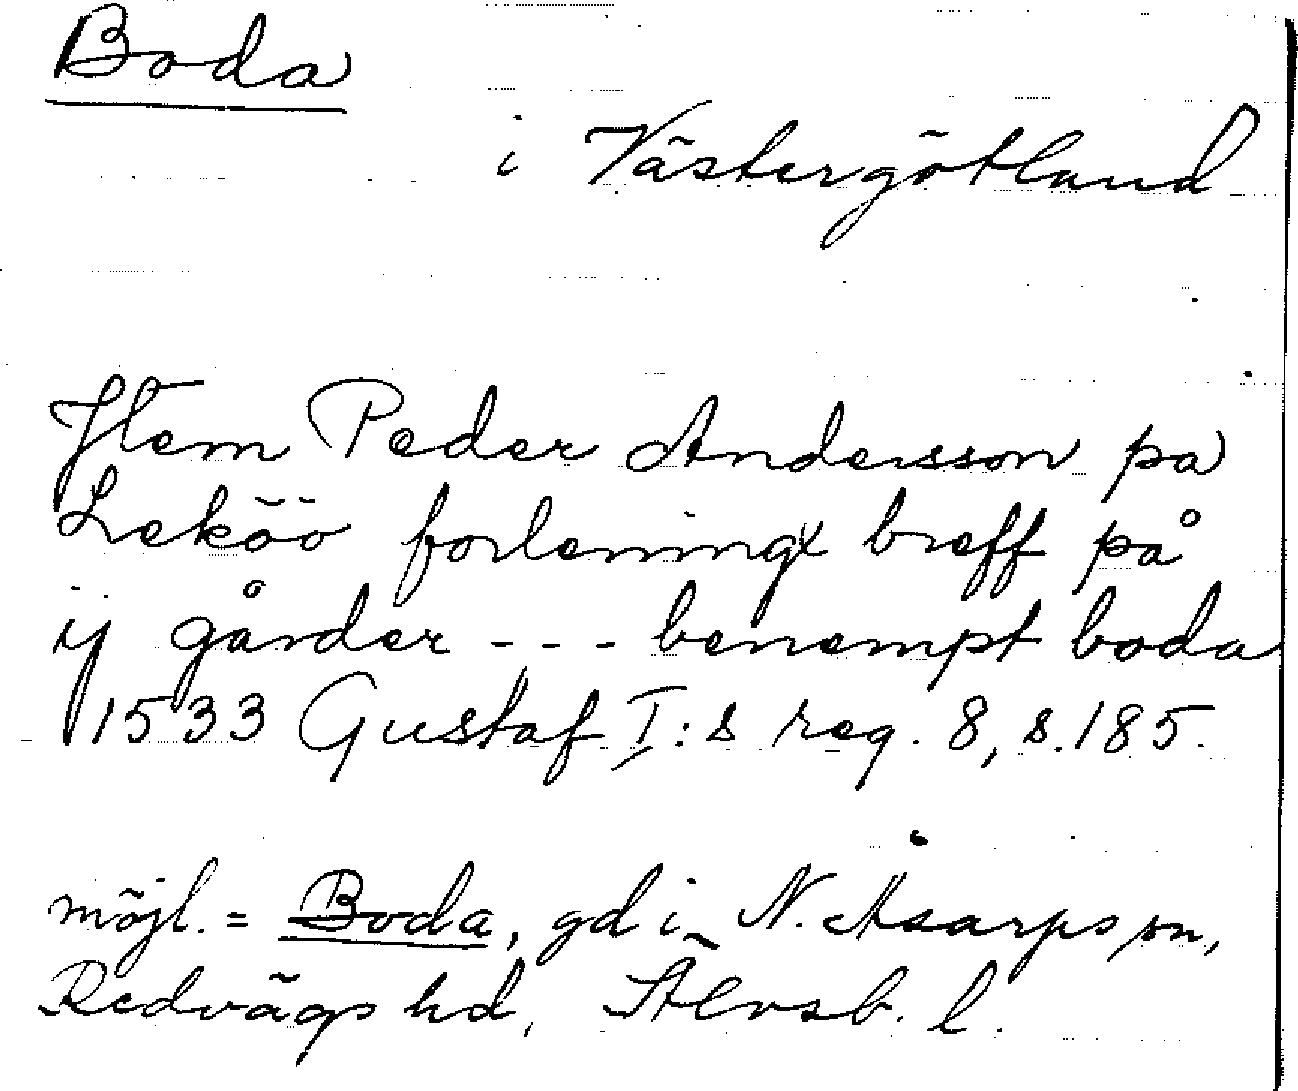 Boda
i Västergötland
Item Peder Andersson pa
Leköö forlening breff på
ij gårder - - - benempt boda
1533 Gustaf I:s reg. 8, s. 185.
möjl. = Boda, gd i N. Åsarps sn,
Redvägs hd, Älvsb. l.